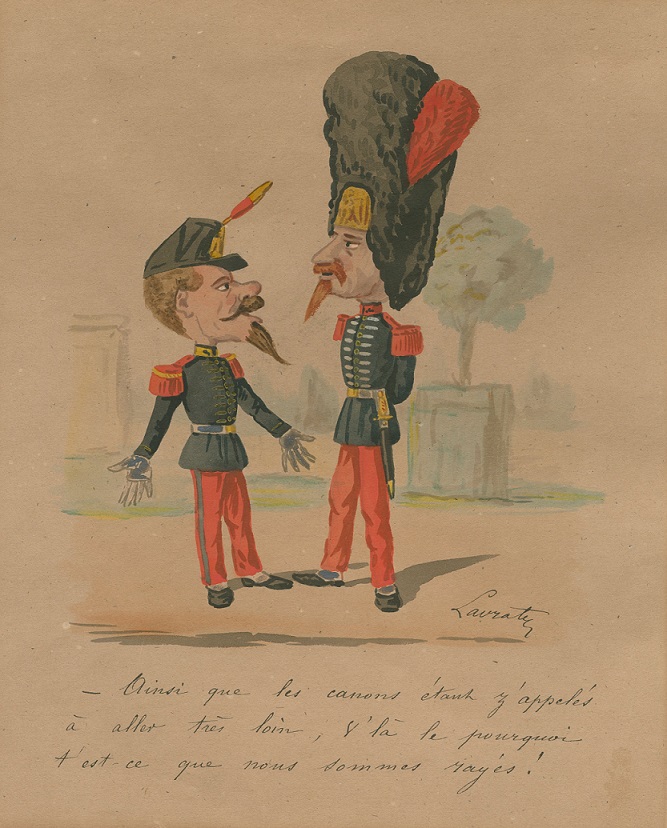 Lavrate
— Ainsi que les canons étant z'appelés
à aller très loin, v'là le pourquoi
t'est-ce que nous sommes rayés !